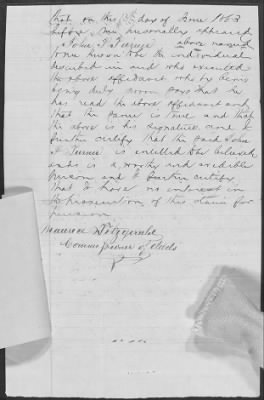 that on this day of June 1863
before me personally appeared
John T. Turner above named
to me known to be the individual
described in and who executed
the above affidavit who by being
by me duly sworn says that he
has read the above affidavit and
that the same is true and that
the above is his signature and I
further certify that the said John
T. Turner is entitled to be believed
and is a worthy and credible
person and I further certify
that I have no interest in
the prosecution of this claim for
pension
Maurice Fitzgerald
Commissioner of deeds